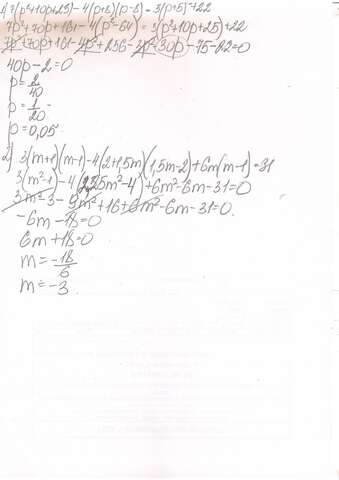 1) 7(p²+10p+23)-4(p+8)(p-8)=3(p+5)²+22
7p²+70p+161-4(p²-64)=3(p²+10p+25)+22
7p²+70p+161-4p²+256-3p²-30p-75-22=0
40p-2=0
p=2/40
p=1/20
p=0,05
2) 3(m+1)(m-1)-4(2+1,5m)(1,5m-2)+6m(m-1)=31
3(m²-1)-4(2,25m²-4)+6m²-6m-31=0
3m²-3-9m²+16+6m²-6m-31=0.
-6m-18=0
6m+18=0
m=-18/6
m=-3